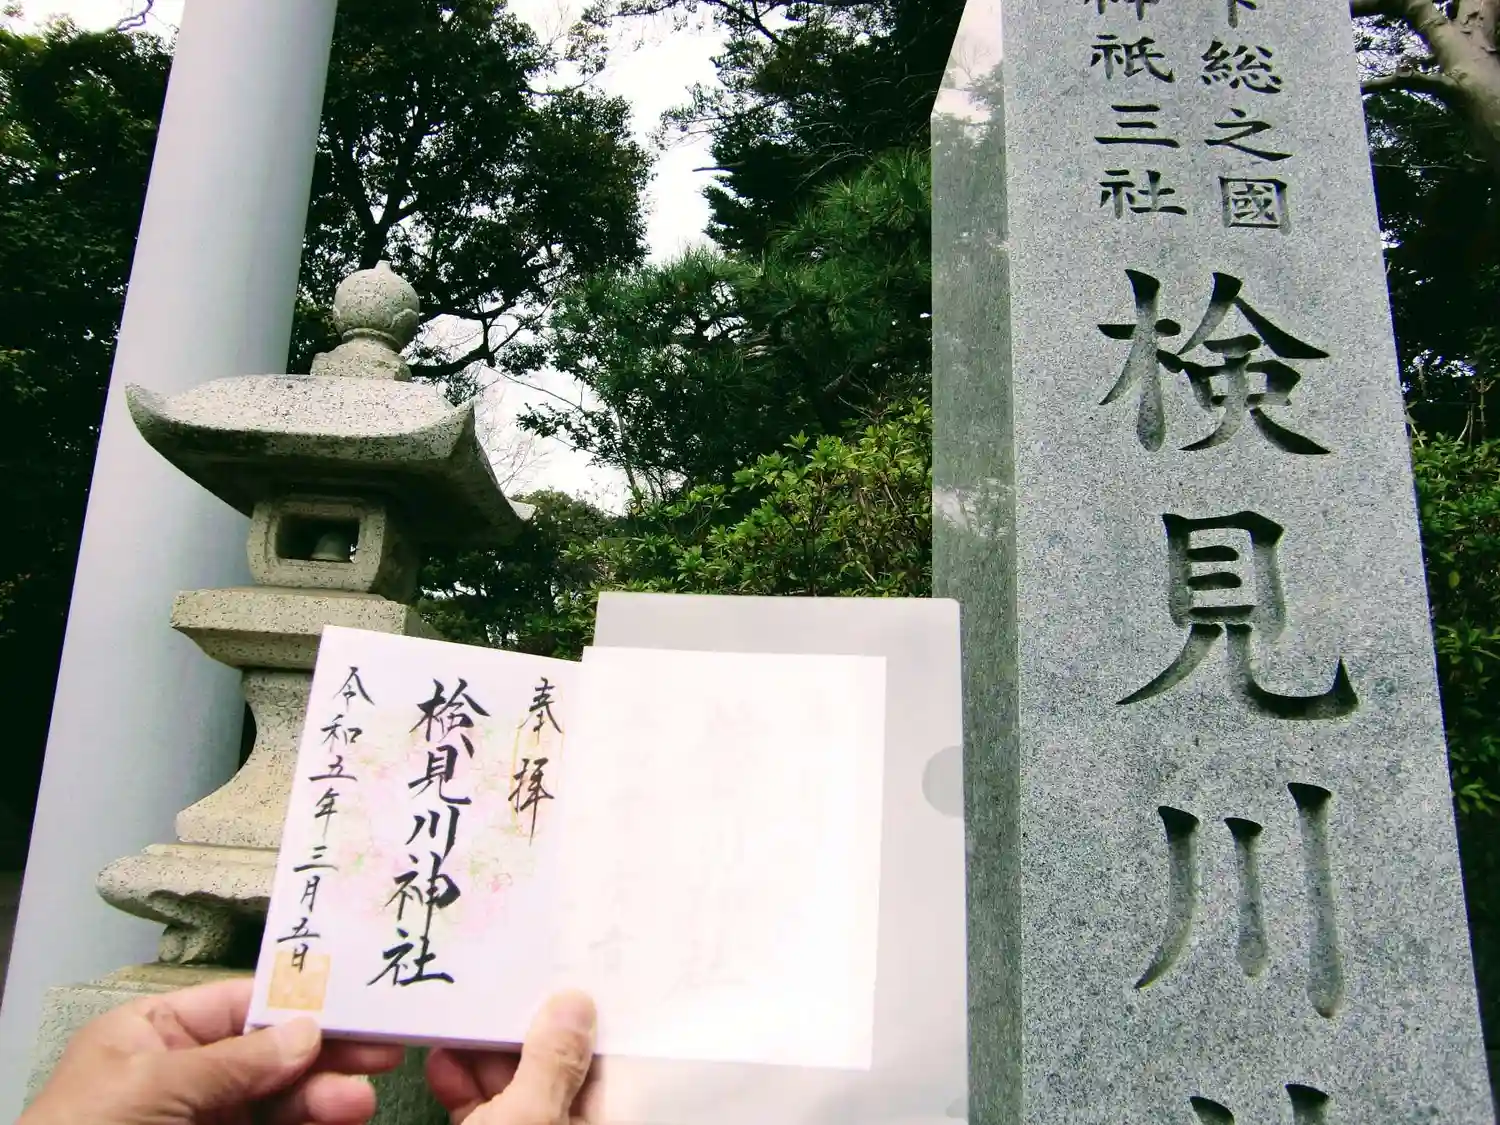 下総之國
神祇三社
検見川神
奉拝
検見川神社
令和五年三月五日